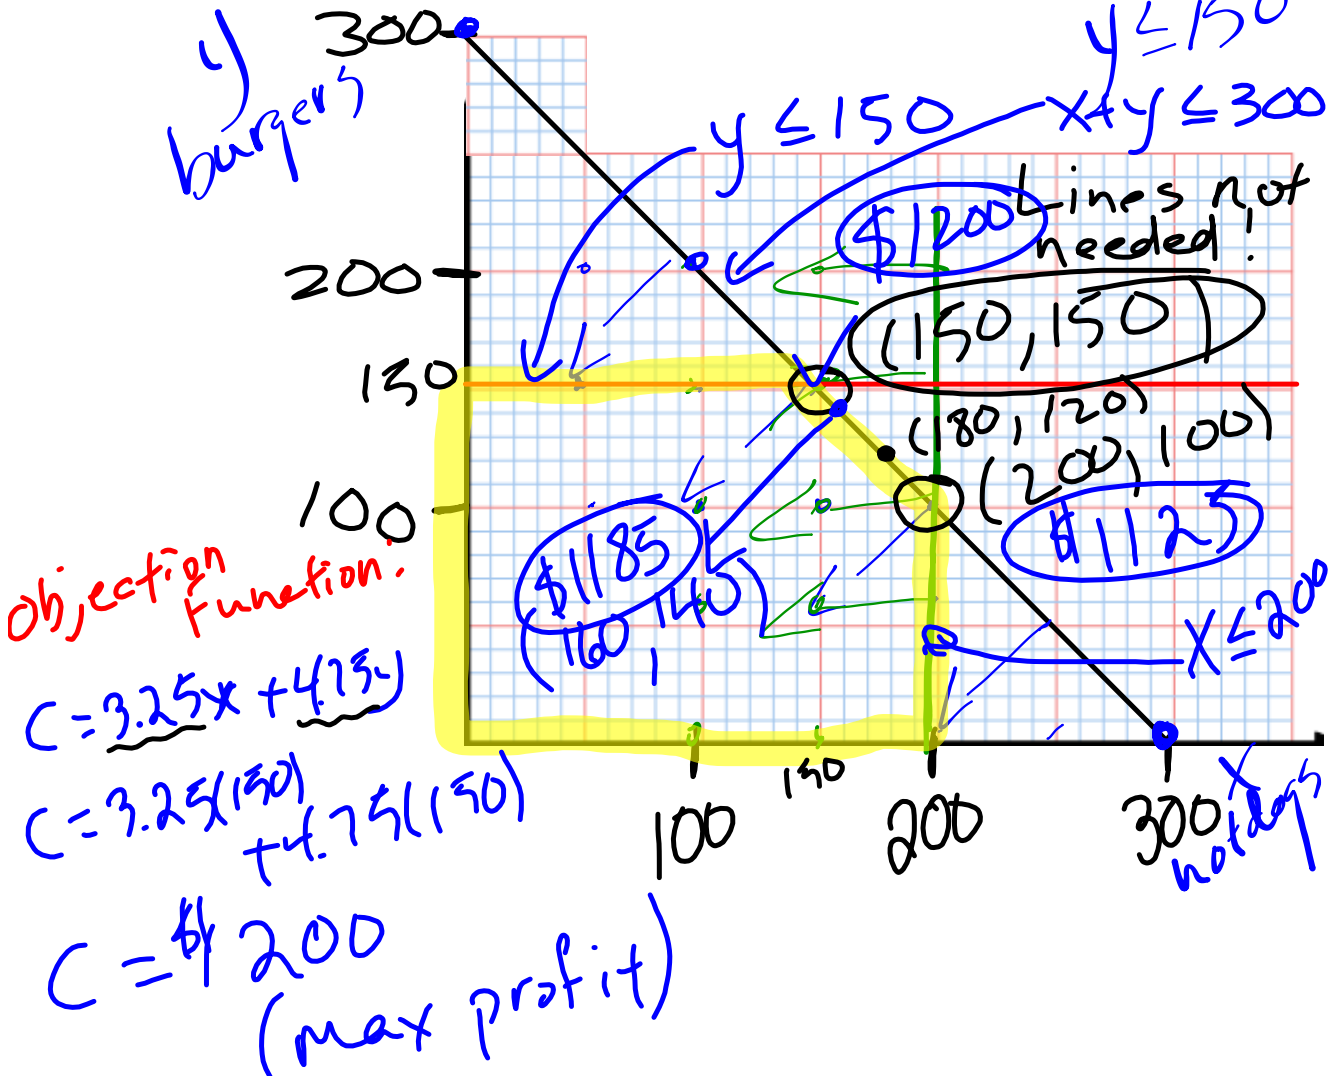 y
burgers
300
y ≤ 150
y ≤ 150
x+y ≤ 300
Lines not
needed!
$1200
200
(150,150)
150
(180,120)
(200,100)
100
$1185
$1125
(160,140)
x ≤ 200
objection
function:
C=3.25x+4.75y
C=3.25(150)
+4.75(150)
100
150
200
300
x
hotdogs
C=$1200
(max profit)